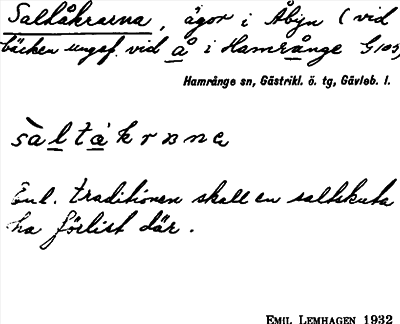 Saltåkrarna, ägor i Åbyn (vid
bäcken ungef. vid å i Hamrånge G103)
Hamrånge sn, Gästrikl. ö. tg, Gävleb. l.
sàltákrɒnɑ
Enl. traditionen skall en saltskuta
ha förlist där.
EMIL LEMHAGEN 1932